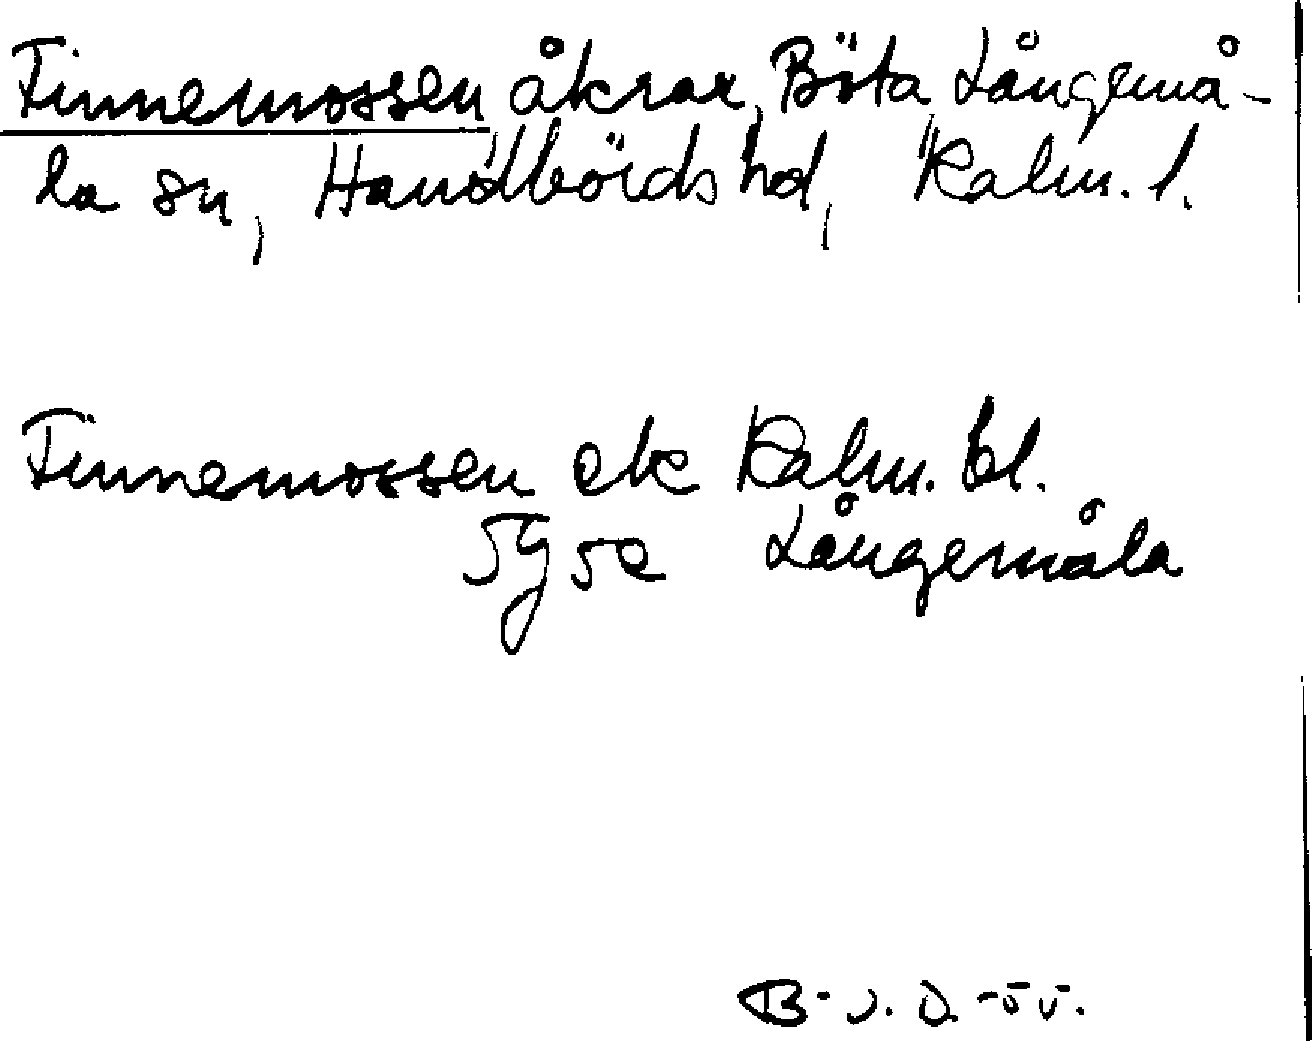 Finnemossen, åkrar, Böta, Långemå-
la sn, Handbörds hd, Kalm. l.
Finnemossen ek Kalm. bl.
5g5e Långemåla